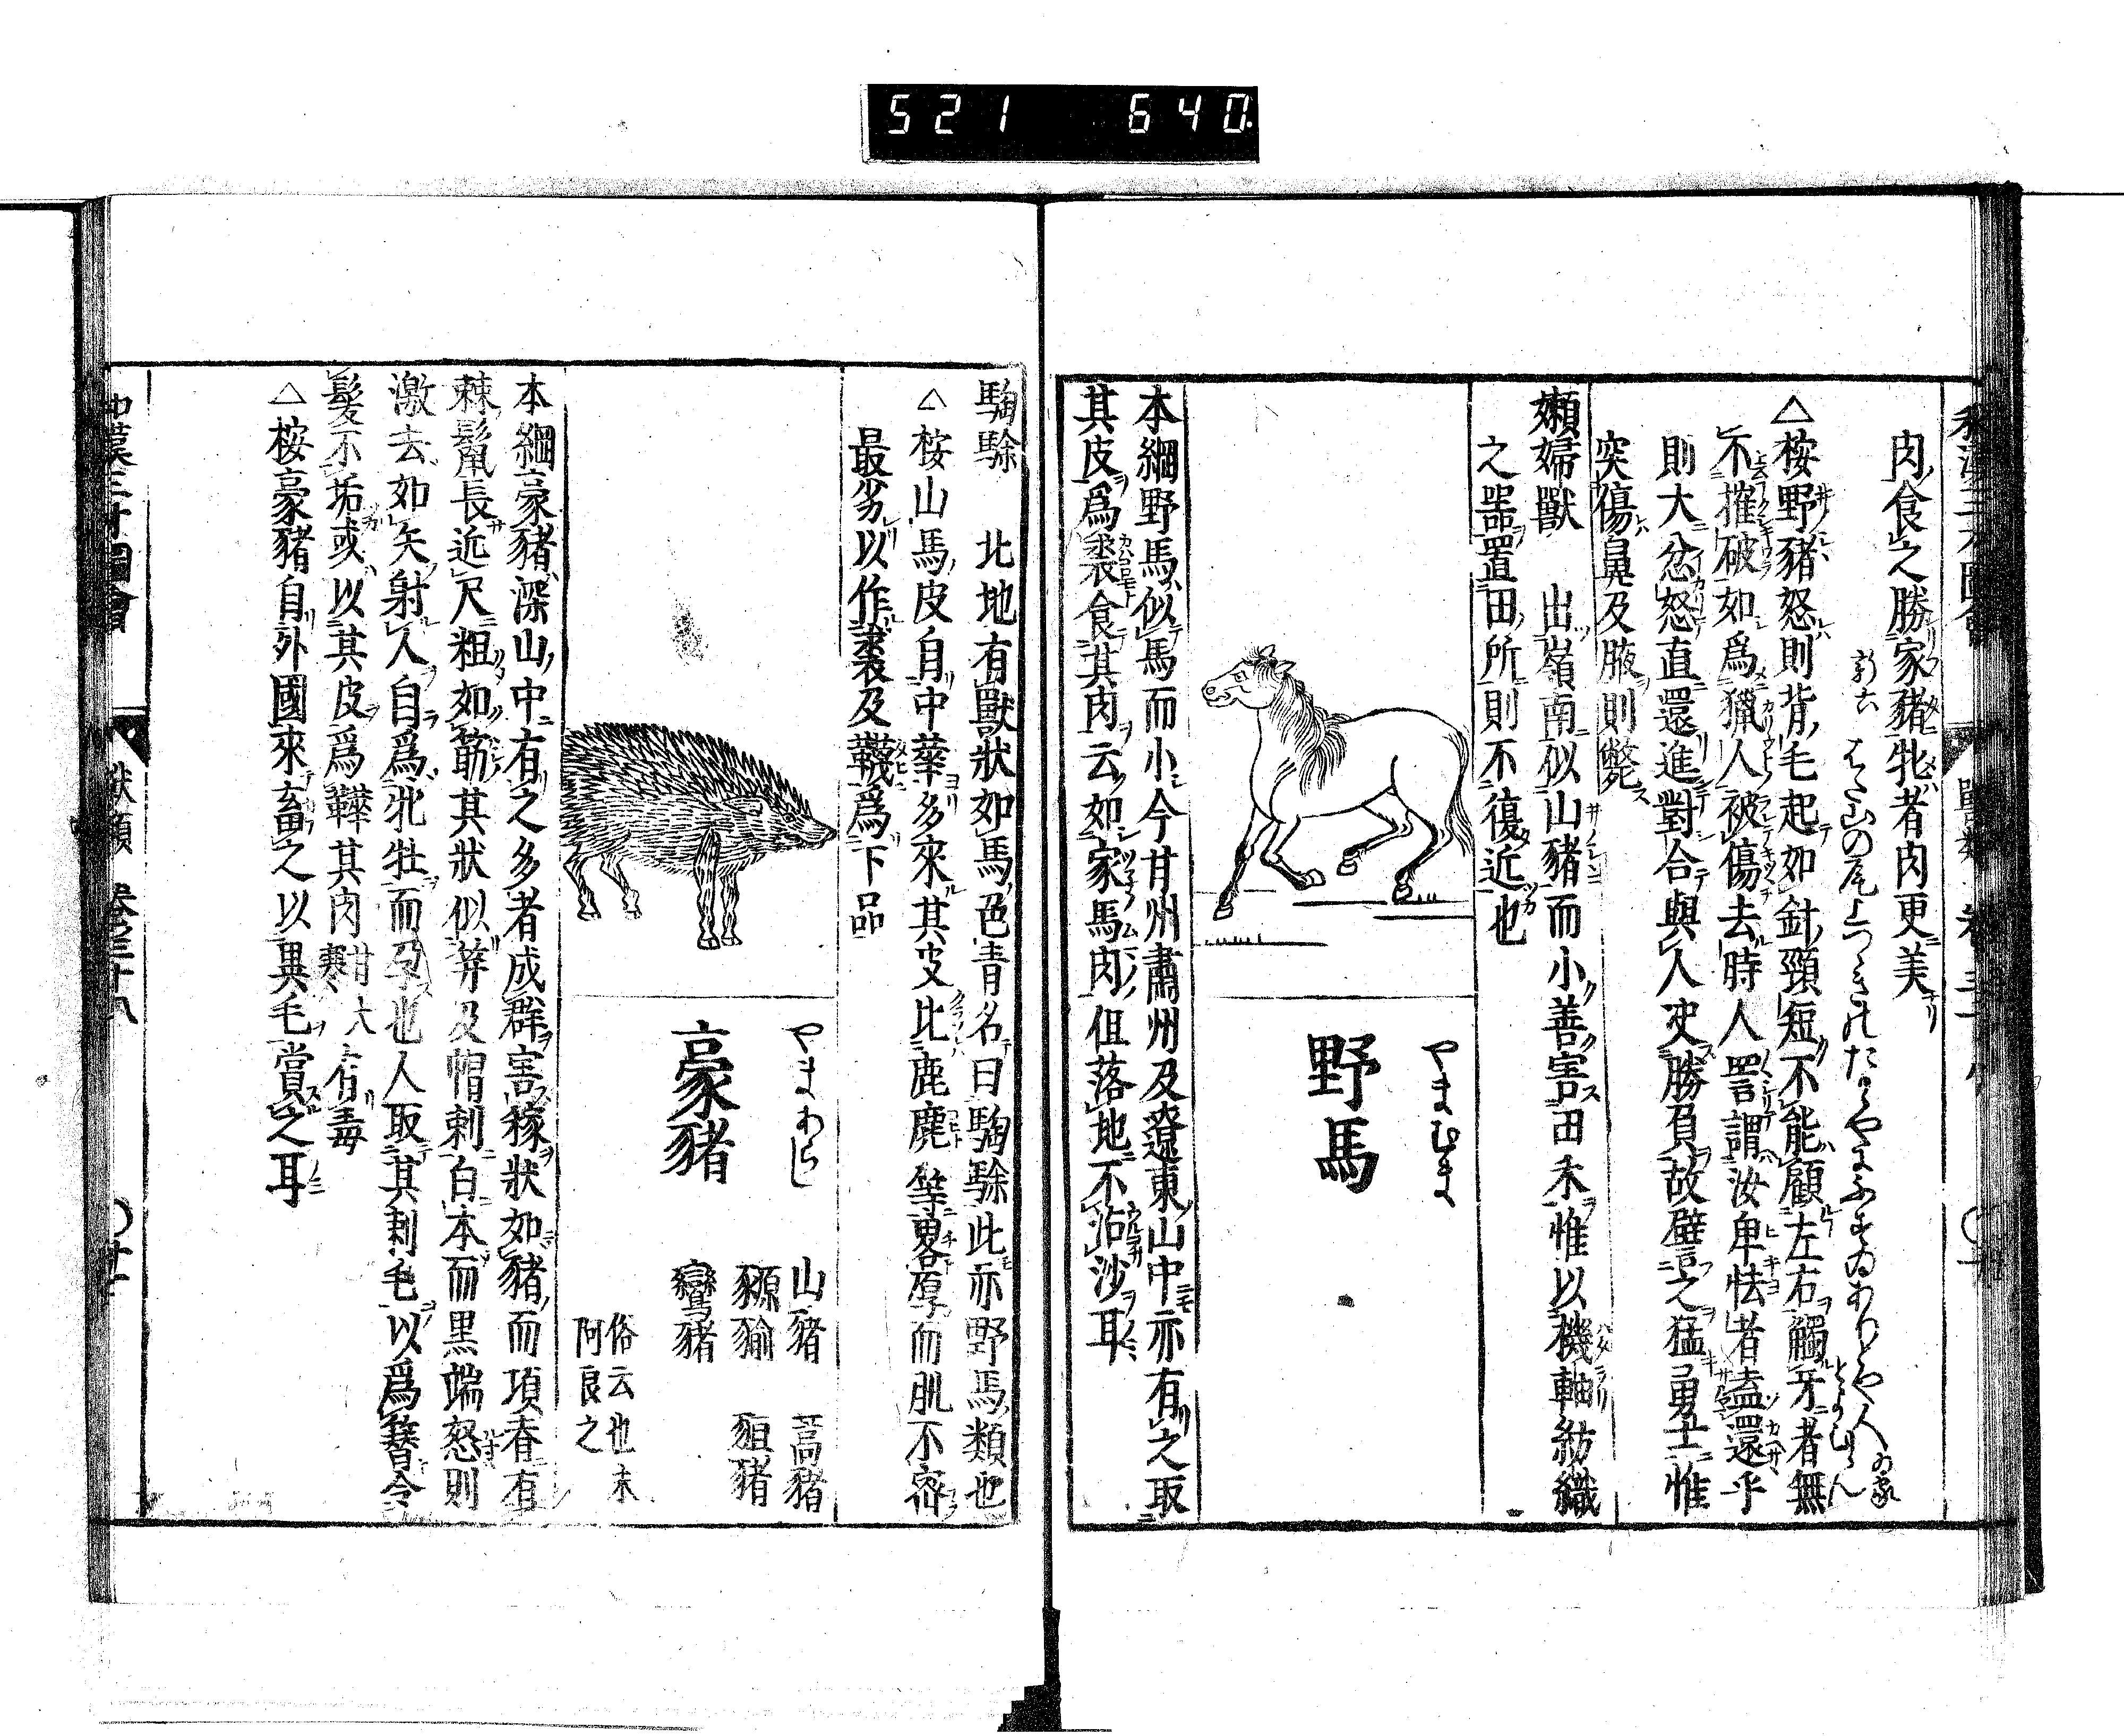 521 640
肉食之勝家猪牝者肉更美
△桉野豬怒則背毛起如針頸短不能顧左右觸牙者無
不摧破如爲獵人被傷去時人詈謂汝卑怯者盍還乎
則大忿怒直還進對合與人决勝負故譬之猛勇士惟
突傷鼻及腋則斃
嬾婦獸 出嶺南似山豬而小善害田禾惟以機軸紡織
之噐置田所則不復近也
やまむま
野馬
本綱野馬似馬而小今甘州肅州及遼東山中亦有之取
其皮爲裘食其肉云如家馬肉但落地不沾沙耳
騊駼 北地有獸狀如馬色青名曰騊駼此亦野馬類也
△桉山馬皮自中華多來其皮比鹿麂等畧厚而肌不密
最劣以作裘及韈爲下品
やまあらし
豪豬
山豬 蒿豬
豲貐 豠豬
鸞豬
俗云也末
阿良之
本綱豪豬深山中有之多者成群害稼狀如豬而項脊有
棘鬣長近尺粗如筯其狀似筓及帽刺白本而黑端怒則
激去如矢射人自爲牝牡而孕也人取其刺毛以爲簪令
髮不垢或以其皮爲鞾其肉甘大寒有毒
△桉豪豬自外國來畜之以異毛賞之耳
獸類 卷三十八